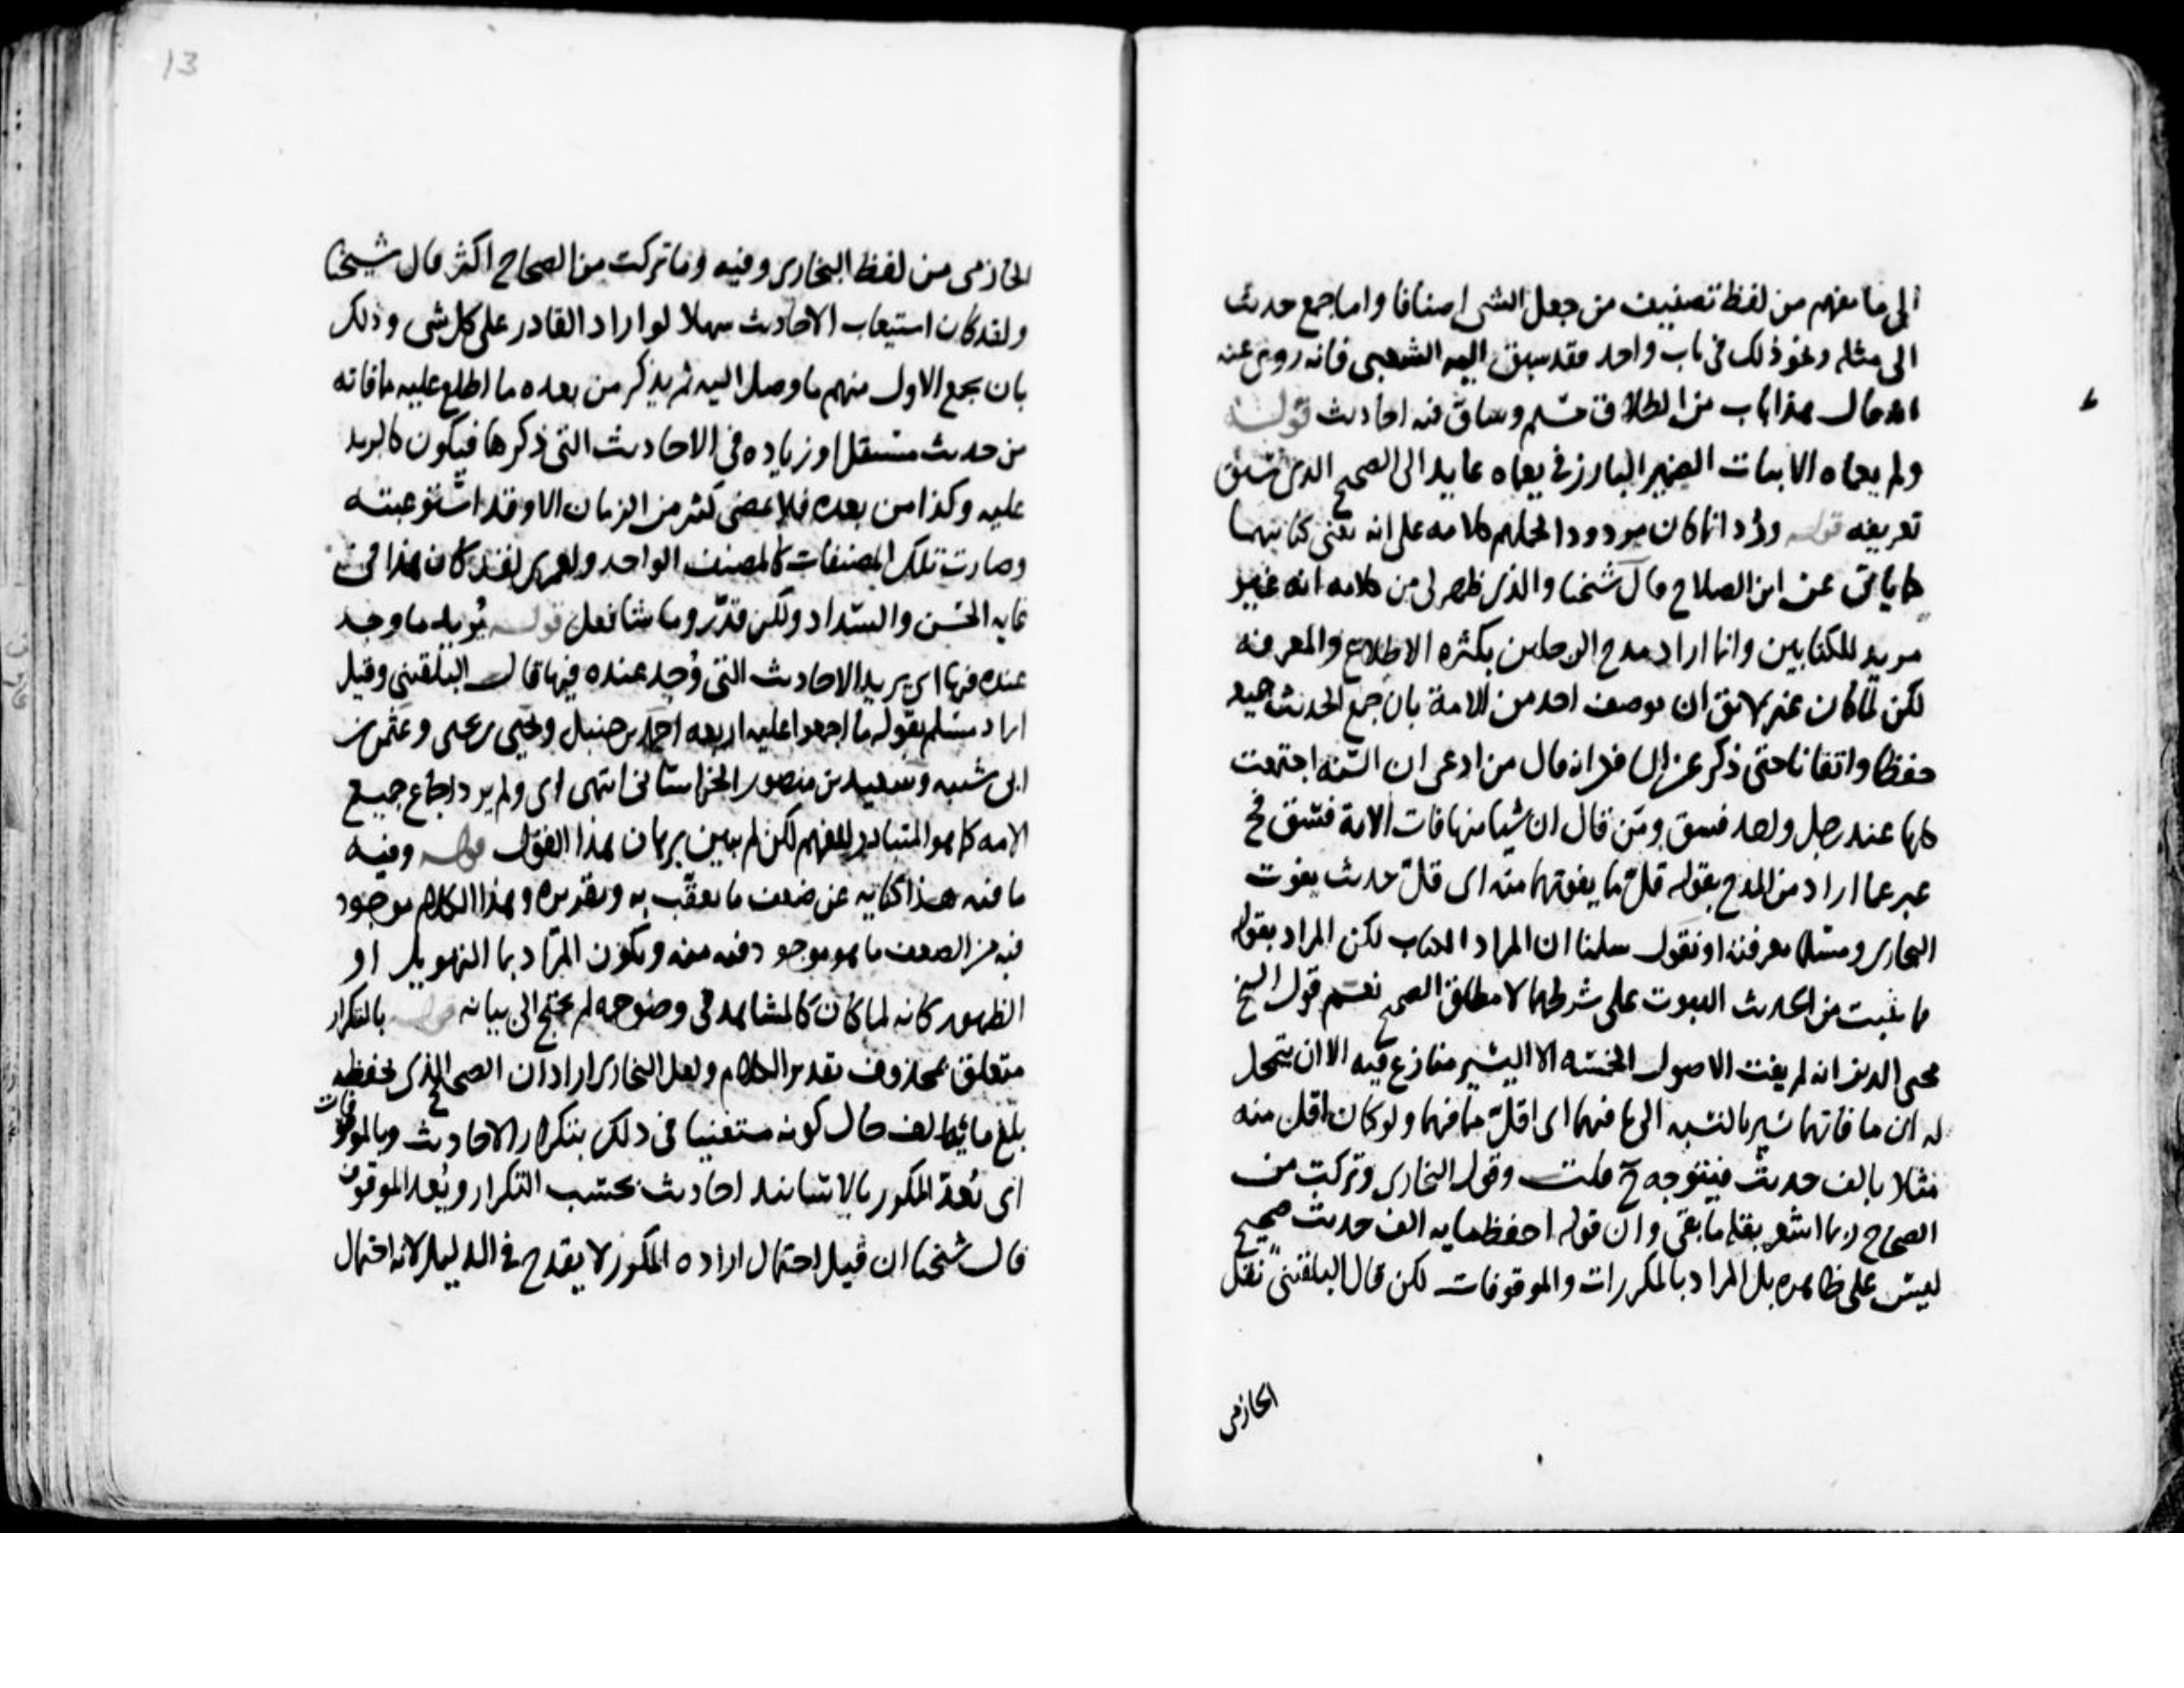 الى ما يفهم من لفظ تصنيف من جعل الشى اصنافا واما جمع حديث
الى مثله ونحو ذلك فى باب واحد فقد سبق اليه الشعبى فانه روى عنه
انه قال هذا باب من الطلاق جسيم وساق فيه احاديث قوله
ولم يعماه الابيات الضمير البارز فى يعماه عايد الى الصحيح الذى سبق
تعريفه قوله ورُد انما كان مردودا لحملهم كلامه على انه يعنى كتابيهما
كما ياتى عن ابن الصلاح قال شيخنا والذى ظهر لى من كلامه انه غير
مريد للكتابين وانما اراد مدح الرجلين بكثره الاطلاع والمعرفه
لكن لما كان غير لائق ان يوصف احد من الامة بان جمع الحديث جميعه
حفظا واتقانا حتى ذكر عن الشافعى انه قال من ادعى ان السنه اجتمعت
كلها عند رجل واحد فسق ومن قال ان شيا منها فات الامة فسق فح
عبر عما اراد من المدح بقوله قل ما يفوتهما منه اى قل حديث يفوت
البخارى ومسلما معرفته او نقول سلمنا ان المراد الكتاب لكن المراد بقوله
مما ثبت من الحديث الثبوت على شرطهما لا مطلق الصحيح نعم قول الشيخ
محيى الدين انه لم يفت الاصول الخمسه الا اليسير منازع فيه الا ان يتمحل
له ان ما فاتهما يسير بالنسبه الى ما فيهما اى اقل مما فيهما ولو كان اقل منه
مثلا بالف حديث فيتوجه ح قلت وقول البخارى وتركت من
الصحاح ربما اشعر بقله ما بقى وان قوله احفظ مايه الف حديث صحيح
ليس على ظاهره بل المراد بالمكررات والموقوفات لكن قال البلقينى نقل
الحازمى
13
الحازمى من لفظ البخارى وفيه وما تركت من الصحاح اكثر قال شيخنا
ولقد كان استيعاب الاحاديث سهلا لو اراد القادر على كل شى وذلك
بان يجمع الاول منهم ما وصل اليه ثم يذكر من بعده ما اطلع عليه مما فاته
من حديث مستقل او زياده فى الاحاديث التى ذكرها فيكون كالزيد
عليه وكذا من بعده فلا يمضى كثير من الزمان الا وقد استوعبت
وصارت تلك المصنفات كالمصنف الواحد ولعمرى لقد كان هذا فى
غايه الحسن والسداد ولكن قدّر وما شا فعل قوله يُريد ما وجد
عنده فيها اى يريد الاحاديث التى وُجد عنده فيها قال البلقينى وقيل
اراد مسلم بقوله ما اجمعوا عليه اربعه احمد بن حنبل ويحيى بن يحيى وعثمن بن
ابى شيبه وسعيد بن منصور الخراسانى انتهى اى ولم يرد اجماع جميع
الامه كما هو المتبادر للفهم لكن لم يبين برهان هذا القول قوله وفيه
ما فيه هذا كنايه عن ضعف ما يعقب به وتقديره وهذا الكلام موجود
فيه من الضعف ما هو موجود فيه منه ويكون المراد بما التهويل او
الظهور كانه لما كان كالمشاهد فى وضوحه لم يحتج الى بيانه قوله بالتكرار
متعلق بمحذوف تقدير الكلام ولعل البخارى اراد ان الصحيح الذى يحفظه
بلغ مائة الف حال كونه مستعينا فى ذلك بتكرار الاحاديث وبالموقوفات
اى بُعدّ المكرر بالاسانيد احاديث بحسب التكرار وبُعد الموقوف
قال شيخنا ان قيل احتمال اراده المكرر لا يقدح فى الدليل لانه احتمال